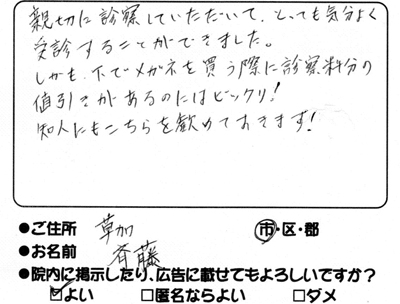 親切に診察していただいて、とっても気分よく
受診することができました。
しかも、下でメガネを買う際に診察料分の
値引きがあるのにはビックリ!
知人にもこちらを勧めておきます!
●ご住所 草加 市・区・郡
●お名前 斉藤
●院内に掲示したり、広告に載せてもよろしいですか?
☑よい □匿名ならよい □ダメ